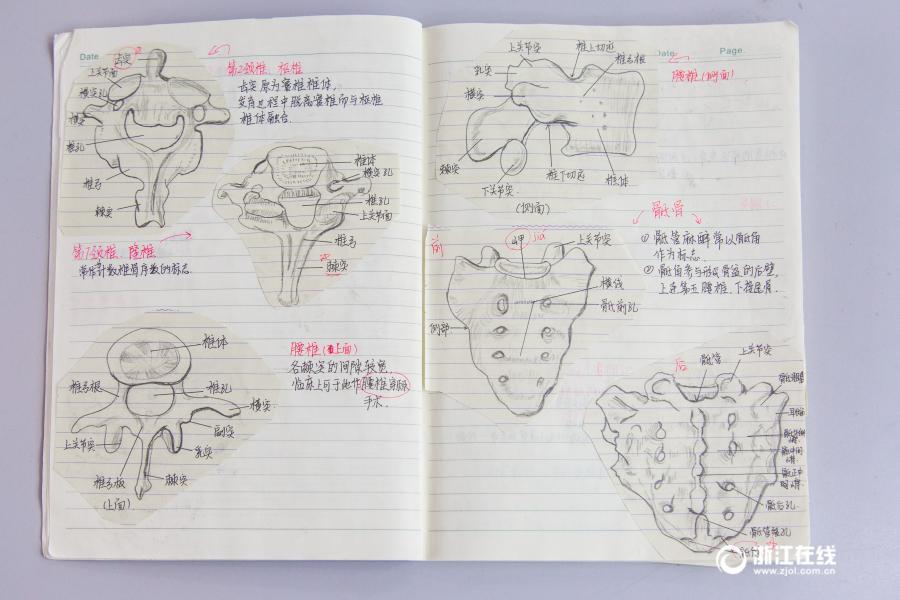 Date
齿突
上关节面
横突孔
横突
椎孔
椎弓
棘突
第2颈椎、枢椎
齿突原为寰椎椎体,
发育过程中脱离寰椎而与枢椎
椎体融合.
椎体
横突孔
椎孔
上关节面
椎弓
棘突
第7颈椎、隆椎
常作计数椎骨序数的标志.
椎体
椎弓根
椎孔
横突
上关节突
副突
乳突
椎弓板
棘突
(上面)
腰椎(上面)
各棘突的间隙较宽
临床上可于此作腰椎穿刺术
手术.
Date
Page.
上关节突
椎上切迹
椎弓根
乳突
横突
棘突
下关节突
椎下切迹
椎体
(侧面)
腰椎(侧面)
骶骨
① 骶管麻醉常以骶角
作为标志.
② 骶骨参与形成骨盆的后壁,
上连第五腰椎、下接尾骨.
前
岬
jiǎ
上关节突
横线
骶前孔
侧部
后
骶管
上关节突
骶粗隆
耳状面
骶外侧
嵴
骶中间
嵴
骶正中
嵴
骶后孔
骶管裂孔
骶角
浙江在线
www.zjol.com.cn